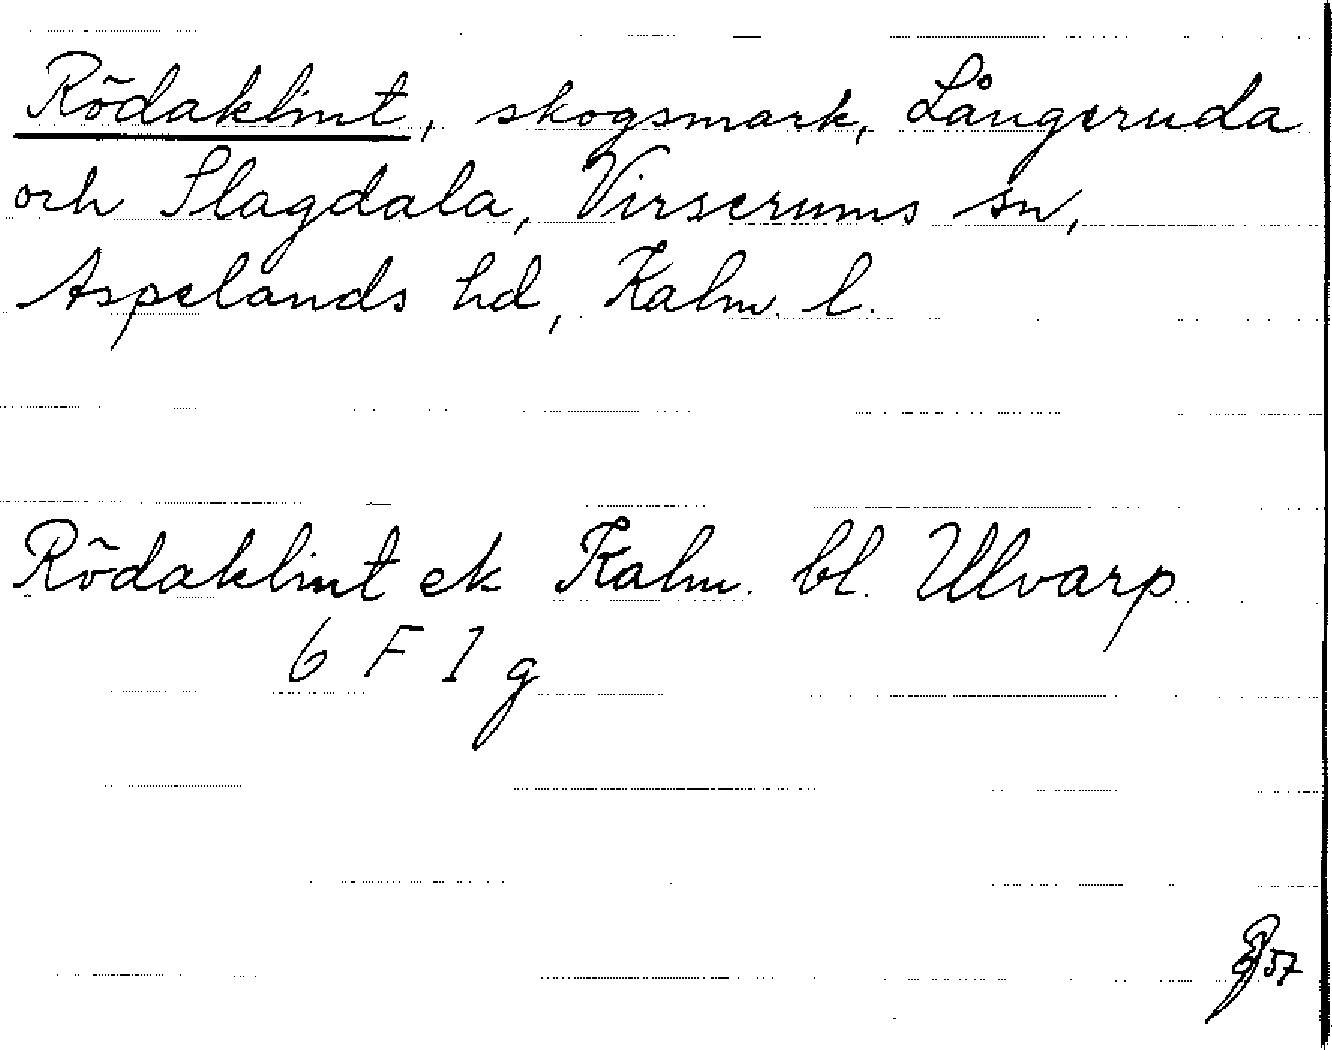 Rödaklint, skogsmark, Långeruda
och Slagdala, Virserums sn,
Aspelands hd, Kalm. l.
Rödaklint ek Kalm. bl. Ulvarp
6 F 1 g
57